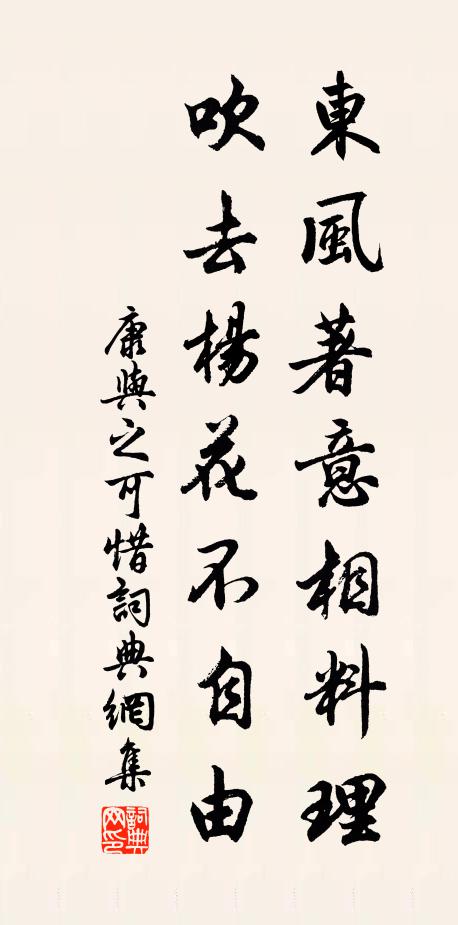 東風著意相料理
吹去楊花不自由
康與之可惜詞典網集
詞典
网印